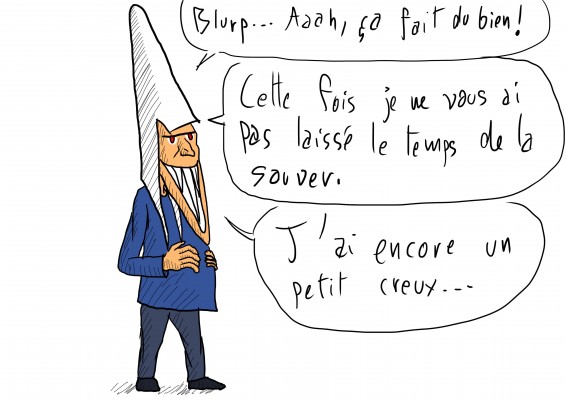 Blurp... Aaah, ça fait du bien!
Cette fois je ne vous ai
pas laissé le temps de la
sauver.
J'ai encore un
petit creux...